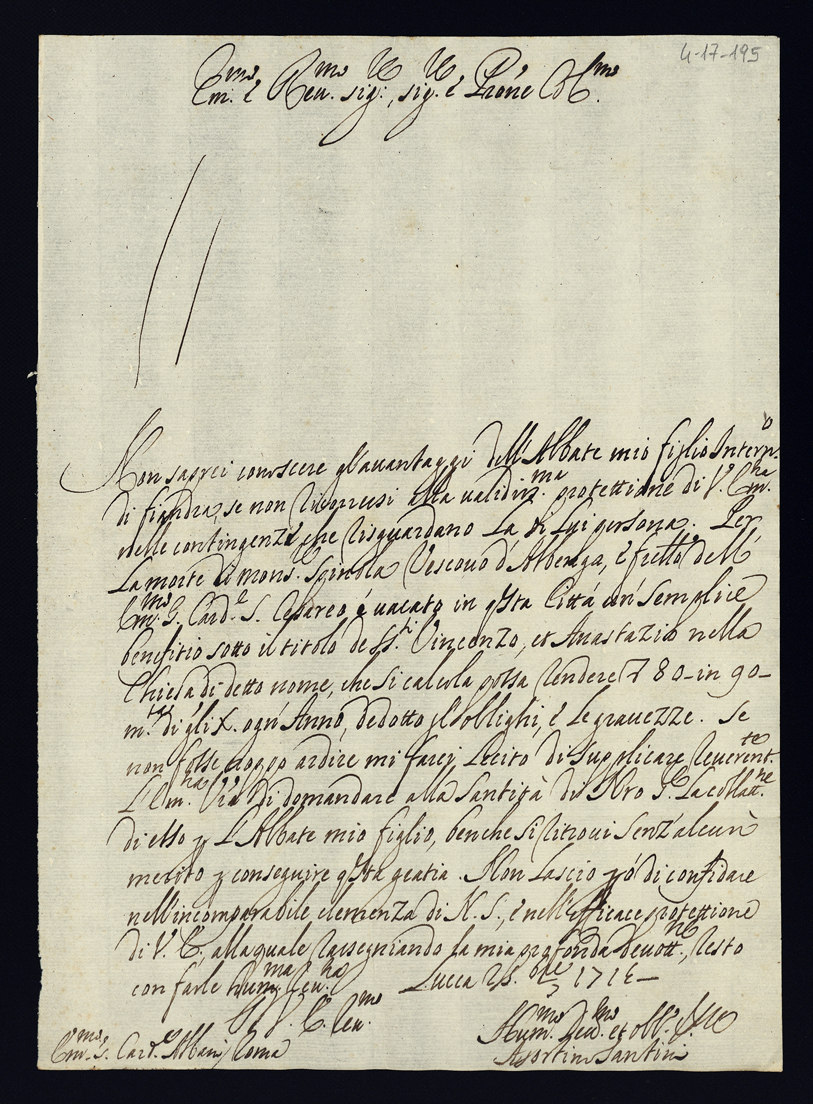 4-17-195
Em.mo e Reu.mo sig:r, sig.r e Prone Col.mo
Non saprei conoscere gl'auantaggi dell'Abbate mio figlio Intern.o
di fiandra, se non ricorressi alla validiss.ma protettione di V. Em.za
nelle contingenze, che risguardano la di lui persona. Per
la morte di mons.r Spinola Vescouo d'Albenga, e fratello dell'
Em.mo S. Card.e S. Cesareo è uacato in questa Città un semplice
benefitio sotto il titolo de SS.ti Vincenzo, et Anastazio nella
Chiesa di detto nome, che si calcola possa rendere 80- in 90-
m.ta di gli X. ogn'Anno, dedotto gl'obblighi, e le grauezze. Se
non fosse troppo ardire mi farei lecito di supplicare reuerent.te
l'Em.za V.ra di domandare alla Santità di Nro S.re la collatt.ne
di esso p l'Abbate mio figlio, benche si ritroui senz'alcun
merito p conseguire qsta gratia. Non lascio però di confidare
nell'incomparabile clemenza di N. S., e nell'efficace protettione
di V. E., alla quale rassegniando la mia profonda deuott.ne, resto
con farle hum.ma reu.za Lucca 171
D V. E. reu.mo
Hum.mo Deu.mo et obb.
Em.mo S. Card.e Albani Roma
Santini